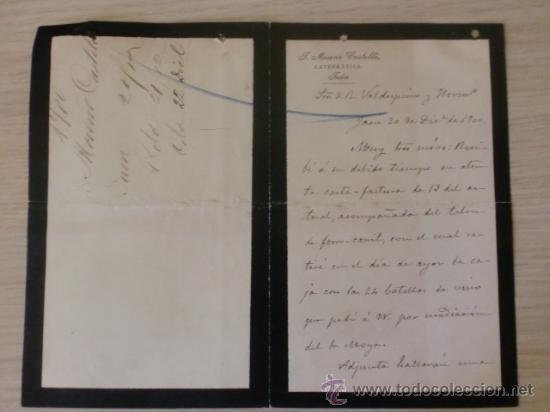 1900
Moreno Castelló
Jaen 20/
22
J. Moreno Castelló
CATEDRÁTICO
Jaén
Sres de R. Valdespino y Herm.º
Jaen 20 de Dic.e de 1900.
Muy Sres míos: Reci-
bí á su debido tiempo su aten-
ta carta-factura de 13 del ac-
tual, acompañada del talon
de ferro-carril, con el cual re-
tiré en el día de ayer la ca-
ja con las 24 botellas de vino
que pedí á W. por mediación
del Sr. Moya.
Adjunta hallarán una
todocoleccion
www.todocoleccion.net